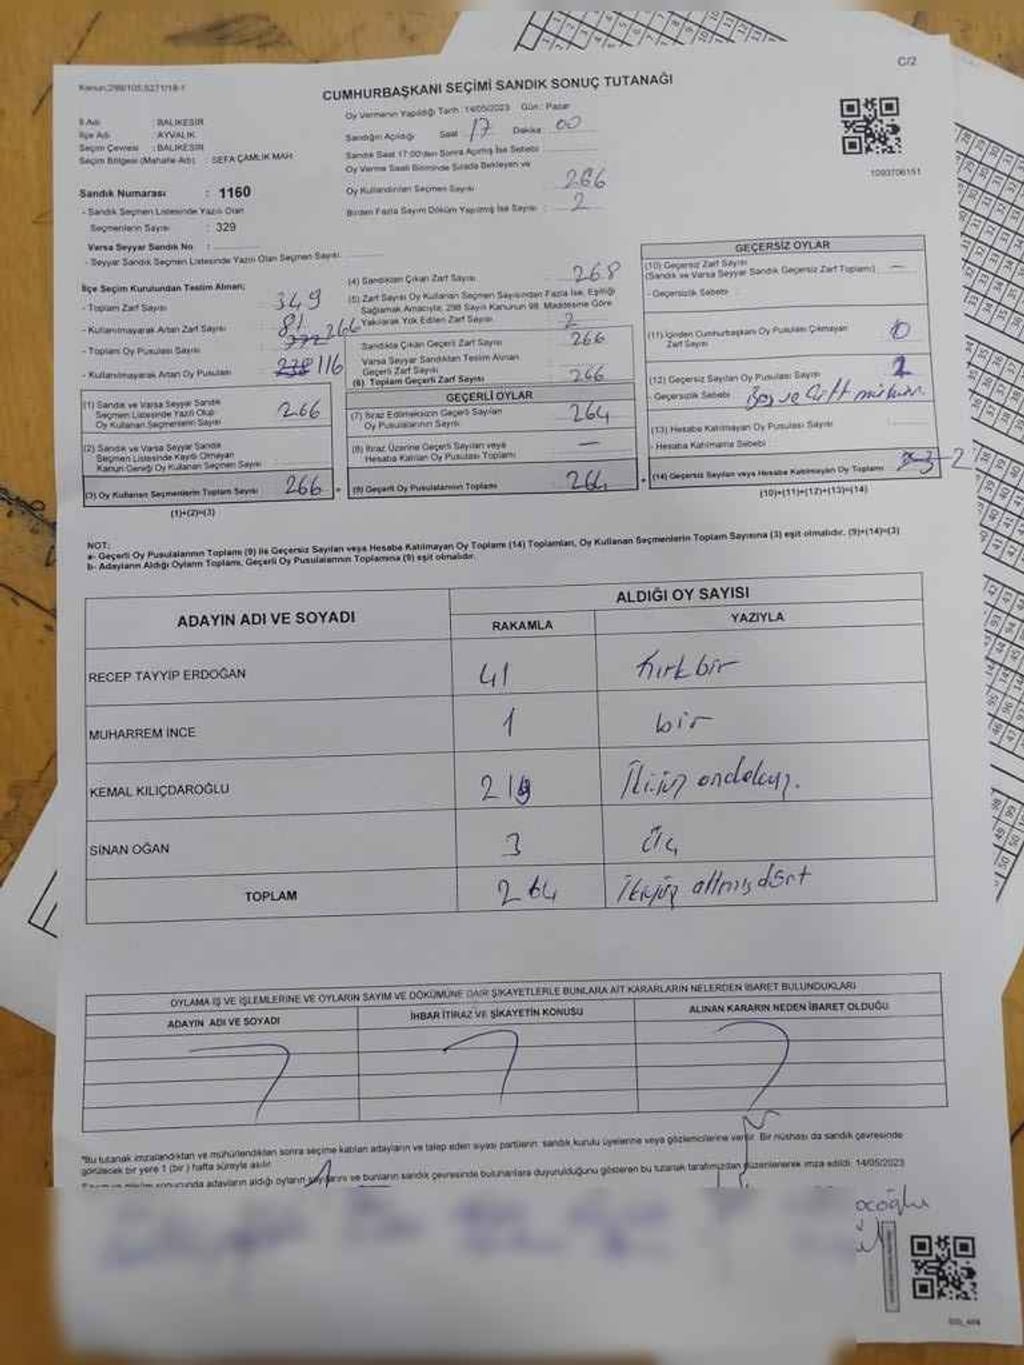 C/2
Kanun:298/105,5271/18-1
CUMHURBAŞKANI SEÇİMİ SANDIK SONUÇ TUTANAĞI
İl Adı : BALIKESİR
İlçe Adı : AYVALIK
Seçim Çevresi : BALIKESİR
Seçim Bölgesi (Mahalle Adı) : SEFA ÇAMLIK MAH.
Sandık Numarası : 1160
- Sandık Seçmen Listesinde Yazılı Olan
Seçmenlerin Sayısı : 329
Varsa Seyyar Sandık No :
- Seyyar Sandık Seçmen Listesinde Yazılı Olan Seçmen Sayısı
Oy Vermenin Yapıldığı Tarih : 14/05/2023 Gün : Pazar
Sandığın Açıldığı Saat 17 Dakika : 00
Sandık Saat 17:00'den Sonra Açılmış İse Sebebi
Oy Verme Saati Bitiminde Sırada Bekleyen ve
Oy Kullandırılan Seçmen Sayısı 266
Birden Fazla Sayım Döküm Yapılmış İse Sayısı : 2
1093706151
İlçe Seçim Kurulundan Teslim Alınan;
- Toplam Zarf Sayısı 349
- Kullanılmayarak Artan Zarf Sayısı 81
- Toplam Oy Pusulası Sayısı 266
- Kullanılmayarak Artan Oy Pusulası 238 116
(1) Sandık ve Varsa Seyyar Sandık
Seçmen Listesinde Yazılı Olup
Oy Kullanan Seçmenlerin Sayısı 266
(2) Sandık ve Varsa Seyyar Sandık
Seçmen Listesinde Kayıtlı Olmayan
Kanun Gereği Oy Kullanan Seçmen Sayısı
(3) Oy Kullanan Seçmenlerin Toplam Sayısı 266
(1)+(2)=(3)
(4) Sandıktan Çıkan Zarf Sayısı 268
(5) Zarf Sayısı Oy Kullanan Seçmen Sayısından Fazla İse, Eşitliği
Sağlamak Amacıyla; 298 Sayılı Kanunun 98. Maddesine Göre
Yakılarak Yok Edilen Zarf Sayısı 2
Sandıkta Çıkan Geçerli Zarf Sayısı 266
Varsa Seyyar Sandıktan Teslim Alınan
Geçerli Zarf Sayısı
(6) Toplam Geçerli Zarf Sayısı 266
GEÇERLİ OYLAR
(7) İtiraz Edilmeksizin Geçerli Sayılan
Oy Pusulalarının Sayısı 264
(8) İtiraz Üzerine Geçerli Sayılan veya
Hesaba Katılan Oy Pusulası Toplamı —
(9) Geçerli Oy Pusulalarının Toplamı 264
GEÇERSİZ OYLAR
(10) Geçersiz Zarf Sayısı
(Sandık ve Varsa Seyyar Sandık Geçersiz Zarf Toplamı) —
- Geçersizlik Sebebi :
(11) İçinden Cumhurbaşkanı Oy Pusulası Çıkmayan
Zarf Sayısı 0
(12) Geçersiz Sayılan Oy Pusulası Sayısı
Geçersizlik Sebebi Boş ve Çift mühür.
(13) Hesaba Katılmayan Oy Pusulası Sayısı
- Hesaba Katılmama Sebebi
(14) Geçersiz Sayılan veya Hesaba Katılmayan Oy Toplamı 3 2
(10)+(11)+(12)+(13)=(14)
NOT:
a- Geçerli Oy Pusulalarının Toplamı (9) ile Geçersiz Sayılan veya Hesaba Katılmayan Oy Toplamı (14) Toplamları, Oy Kullanan Seçmenlerin Toplam Sayısına (3) eşit olmalıdır. (9)+(14)=(3)
b- Adayların Aldığı Oyların Toplamı, Geçerli Oy Pusulalarının Toplamına (9) eşit olmalıdır.
ADAYIN ADI VE SOYADI ALDIĞI OY SAYISI
RAKAMLA YAZIYLA
RECEP TAYYİP ERDOĞAN 41 kırkbir
MUHARREM İNCE 1 bir
KEMAL KILIÇDAROĞLU 219 İkiyüz ondokuz.
SİNAN OĞAN 3 üç
TOPLAM 264 İkiyüz altmışdört
OYLAMA İŞ VE İŞLEMLERİNE VE OYLARIN SAYIM VE DÖKÜMÜNE DAİR ŞİKAYETLERLE BUNLARA AİT KARARLARIN NELERDEN İBARET BULUNDUKLARI
ADAYIN ADI VE SOYADI İHBAR İTİRAZ VE ŞİKAYETİN KONUSU ALINAN KARARIN NEDEN İBARET OLDUĞU
*Bu tutanak imzalandıktan ve mühürlendikten sonra seçime katılan adayların ve talep eden siyasi partilerin sandık kurulu üyelerine veya gözlemcilerine verilir. Bir nüshası da sandık çevresinde
görülecek bir yere 1 (bir) hafta süreyle asılır.
sonucunda adayların aldığı oyların sayılarını ve bunların sandık çevresinde bulunanlara duyurulduğunu gösteren bu tutanak tarafımızdan düzenlenerek imza edildi. 14/05/2023
ocoğlu